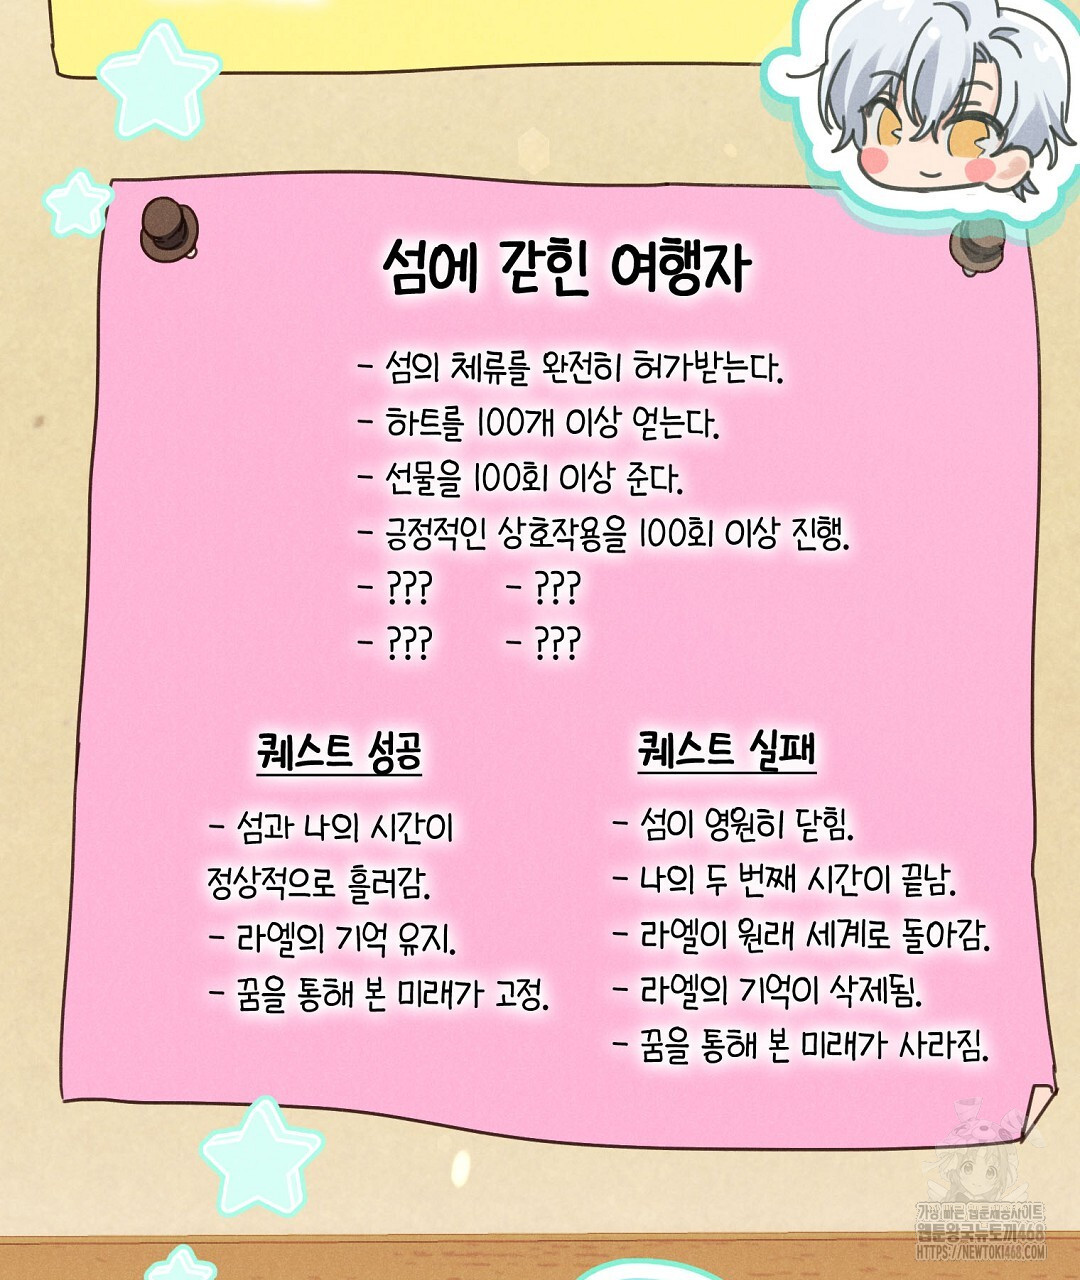 섬에 갇힌 여행자
- 섬의 체류를 완전히 허가받는다.
- 하트를 100개 이상 얻는다.
- 선물을 100회 이상 준다.
- 긍정적인 상호작용을 100회 이상 진행.
- ??? - ???
- ??? - ???
퀘스트 성공
- 섬과 나의 시간이
정상적으로 흘러감.
- 라엘의 기억 유지.
- 꿈을 통해 본 미래가 고정.
퀘스트 실패
- 섬이 영원히 닫힘.
- 나의 두 번째 시간이 끝남.
- 라엘이 원래 세계로 돌아감.
- 라엘의 기억이 삭제됨.
- 꿈을 통해 본 미래가 사라짐.
가장 빠른 웹툰제공사이트
웹툰왕국뉴토끼468
HTTPS://NEWTOKI468.COM